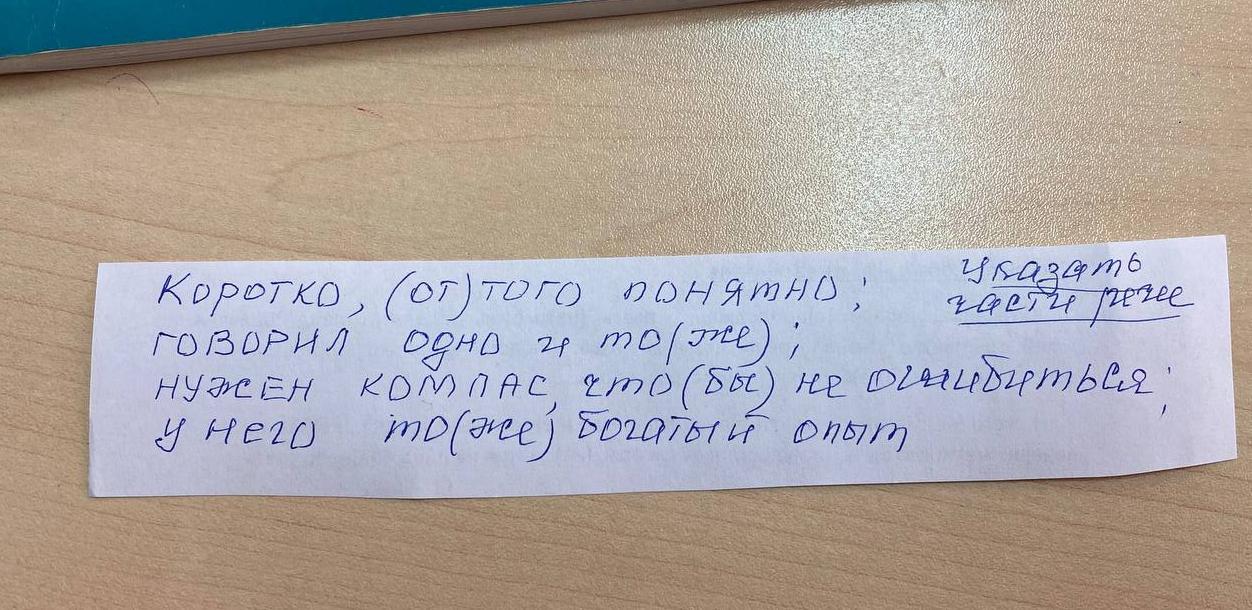 Коротко, (от)того понятно; Указать
части речи
говорил одно и то(же);
нужен компас, что(бы) не ошибиться;
у него то(же) богатый опыт